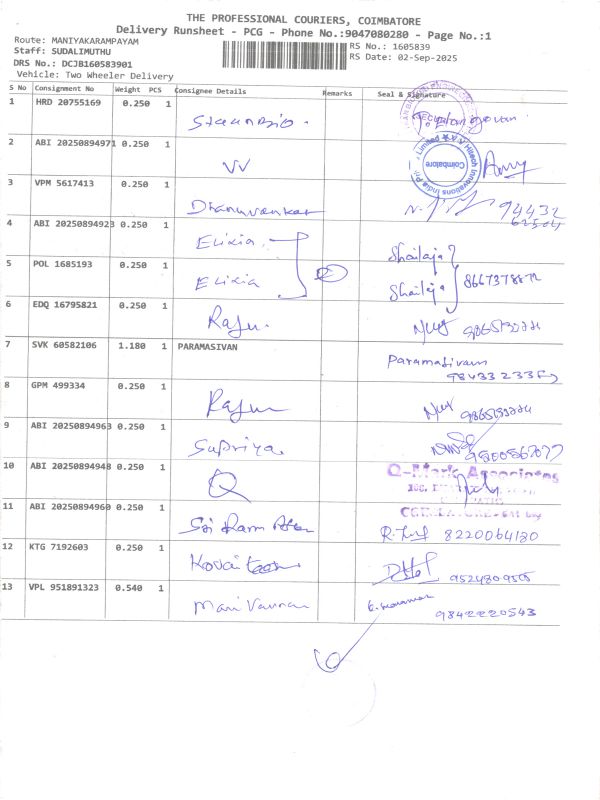 THE PROFESSIONAL COURIERS, COIMBATORE
Delivery Runsheet - PCG - Phone No.:9047080280 - Page No.:1
Route: MANIYAKARAMPAYAM
RS No.: 1605839
Staff: SUDALIMUTHU
RS Date: 02-Sep-2025
DRS No.: DCJB160583901
Vehicle: Two Wheeler Delivery
S No Consignment No Weight PCS Consignee Details Remarks Seal & Signature
1 HRD 20755169 0.250 1
2 ABI 20250894971 0.250 1 VV
Hitech Innovations India
Coimbatore
3 VPM 5617413 0.250 1 94432
4 ABI 20250894923 0.250 1 Elixia Shailaja
5 POL 1685193 0.250 1 Elixia Shailaja
6 EDQ 16795821 0.250 1 Raju
7 SVK 60582106 1.180 1 PARAMASIVAN Paramasivam
8 GPM 499334 0.250 1 Raju
9 ABI 20250894963 0.250 1 Supriya
10 ABI 20250894948 0.250 1 Q Q-Mark Associates
11 ABI 20250894960 0.250 1 Sri Ram 8220064180
12 KTG 7192603 0.250 1 Kovai
13 VPL 951891323 0.540 1 Mani 9842220543